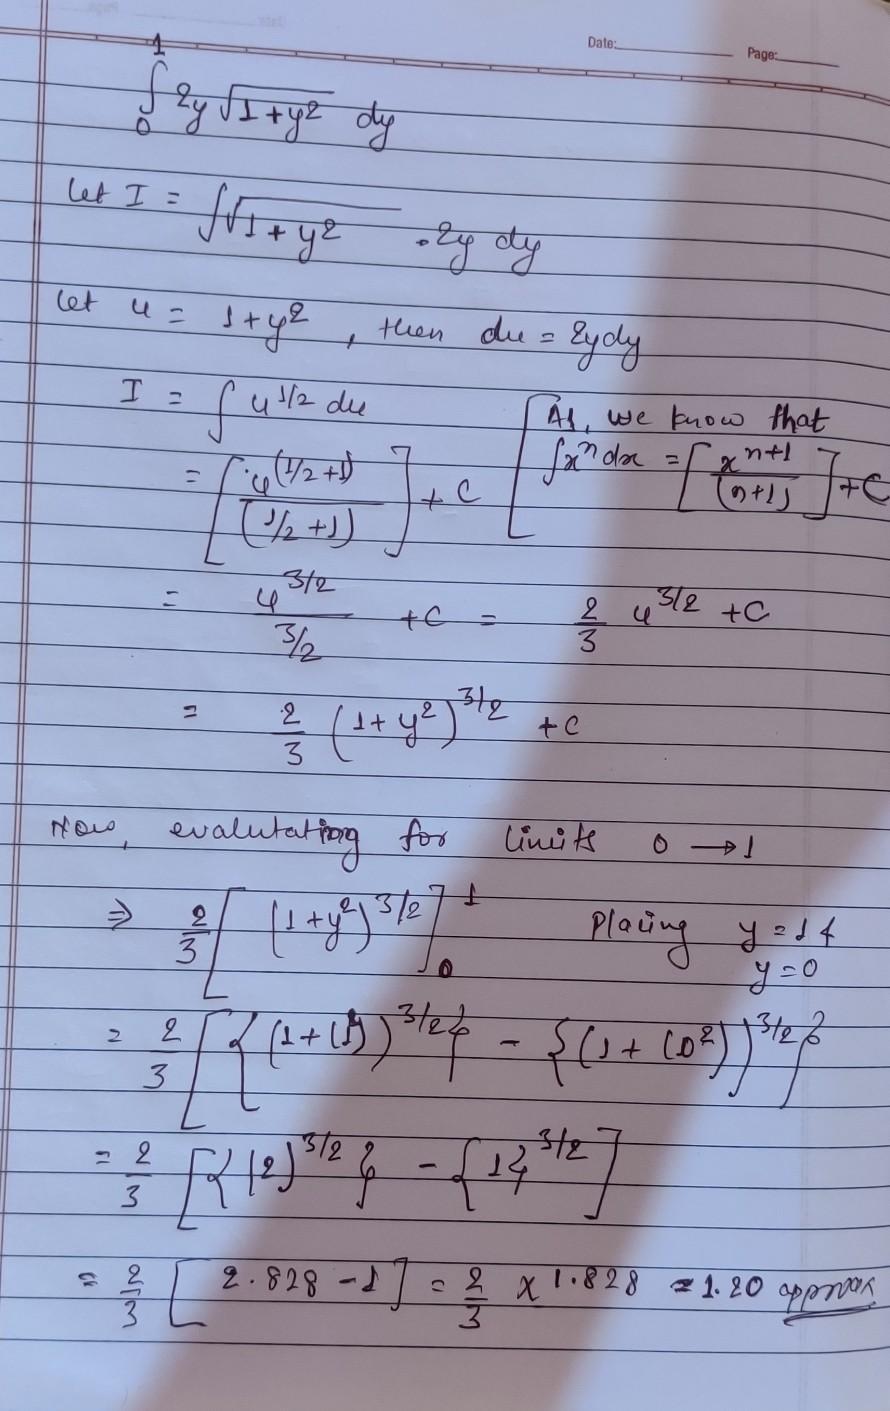 Date: Page:
∫₀¹ 2y √(1+y²) dy
Let I = ∫√(1+y²) .2y dy
Let u = 1+y², then du = 2ydy
I = ∫ u^(1/2) du [As, we know that
= [u^(1/2+1) / (1/2+1)] + C ∫xⁿ dx = [x^(n+1) / (n+1)] + C
= u^(3/2) / (3/2) + C = 2/3 u^(3/2) + C
= 2/3 (1+y²)^(3/2) + C
Now, evalutating for limits 0 → 1
⇒ 2/3 [(1+y²)^(3/2)]₀¹ Placing y = 1 &
y = 0
= 2/3 [{(1+(1))^(3/2)} - {(1+(0²))^(3/2)}
= 2/3 [{(2)^(3/2)} - {1}^(3/2)]
= 2/3 [2.828 - 1] = 2/3 × 1.828 = 1.20 approax